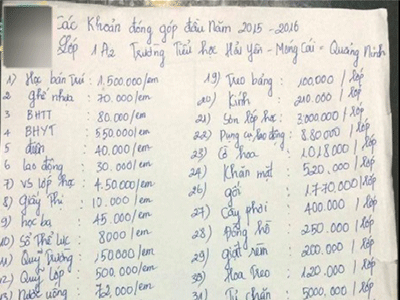 Các Khoản đóng góp đầu Năm 2015 - 2016
Lớp 1A2 Trường Tiểu học Hải Yên - Móng Cái - Quảng Ninh
1) Học bán trú : 1.500.000/em
2 ghế nhựa : 70.000/em
3 BHTT : 80.000/em
4 BHYT : 550.000/em
5 điện : 40.000/em
6 lao động : 30.000/em
7) VS lớp học : 4.50.000/em
8) Giấy thi : 10.000/em
9) học bạ : 45.000/em
10) Sổ Thể Lực : 8000/em
11) Quỹ Trường : 150000/em
12) Quỹ Lớp : 500.000/em
13) Nước uống : 72.000/em
19) Treo bảng : 100.000 / lớp
20) Kính : 210.000 / lớp
21) Sơn lớp học : 3.000.000 / lớp
22) Dụng cụ lao động : 880.000 / lớp
23) Cờ hoa : 1.018.000 / lớp
24) Khăn mặt : 520.000 / lớp
26) gối : 1.770.000 / lớp
27) Cây phơi : 400.000 / lớp
28) Đồng hồ : 250.000 / lớp
29) giặt rèm : 200.000 / lớp
30) Hoa Treo : 1.20.000 / lớp
31) Tủ chăn : 5000.000 / lớp